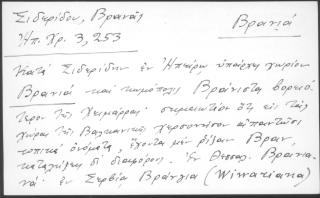 Σιδερίδου, Βρανᾶς
Βρανιά
Ἠπ. Χρ. 3, 253
Κατὰ Σιδερίδην ἐν Ἠπείρῳ ὑπάρχει χωρίον
Βρανιὰ καὶ κωμόπολις Βράνιστα βορειό
τερον τῆς Χειμάρρας. σημειωτέον ὅτι εἰς τὰς
χώρας τῆς Βαλκανικῆς χερσονήσου ἀπαντῶσι
τοπικὰ ὀνόματα, ἔχοντα μὲν ῥίζαν Βραν,
καταλήξεις δὲ διαφόρους. Ἐν Θεσσαλ. Βρανια
νά ἐν Σερβίᾳ Βράνγια (Wiwatiana)